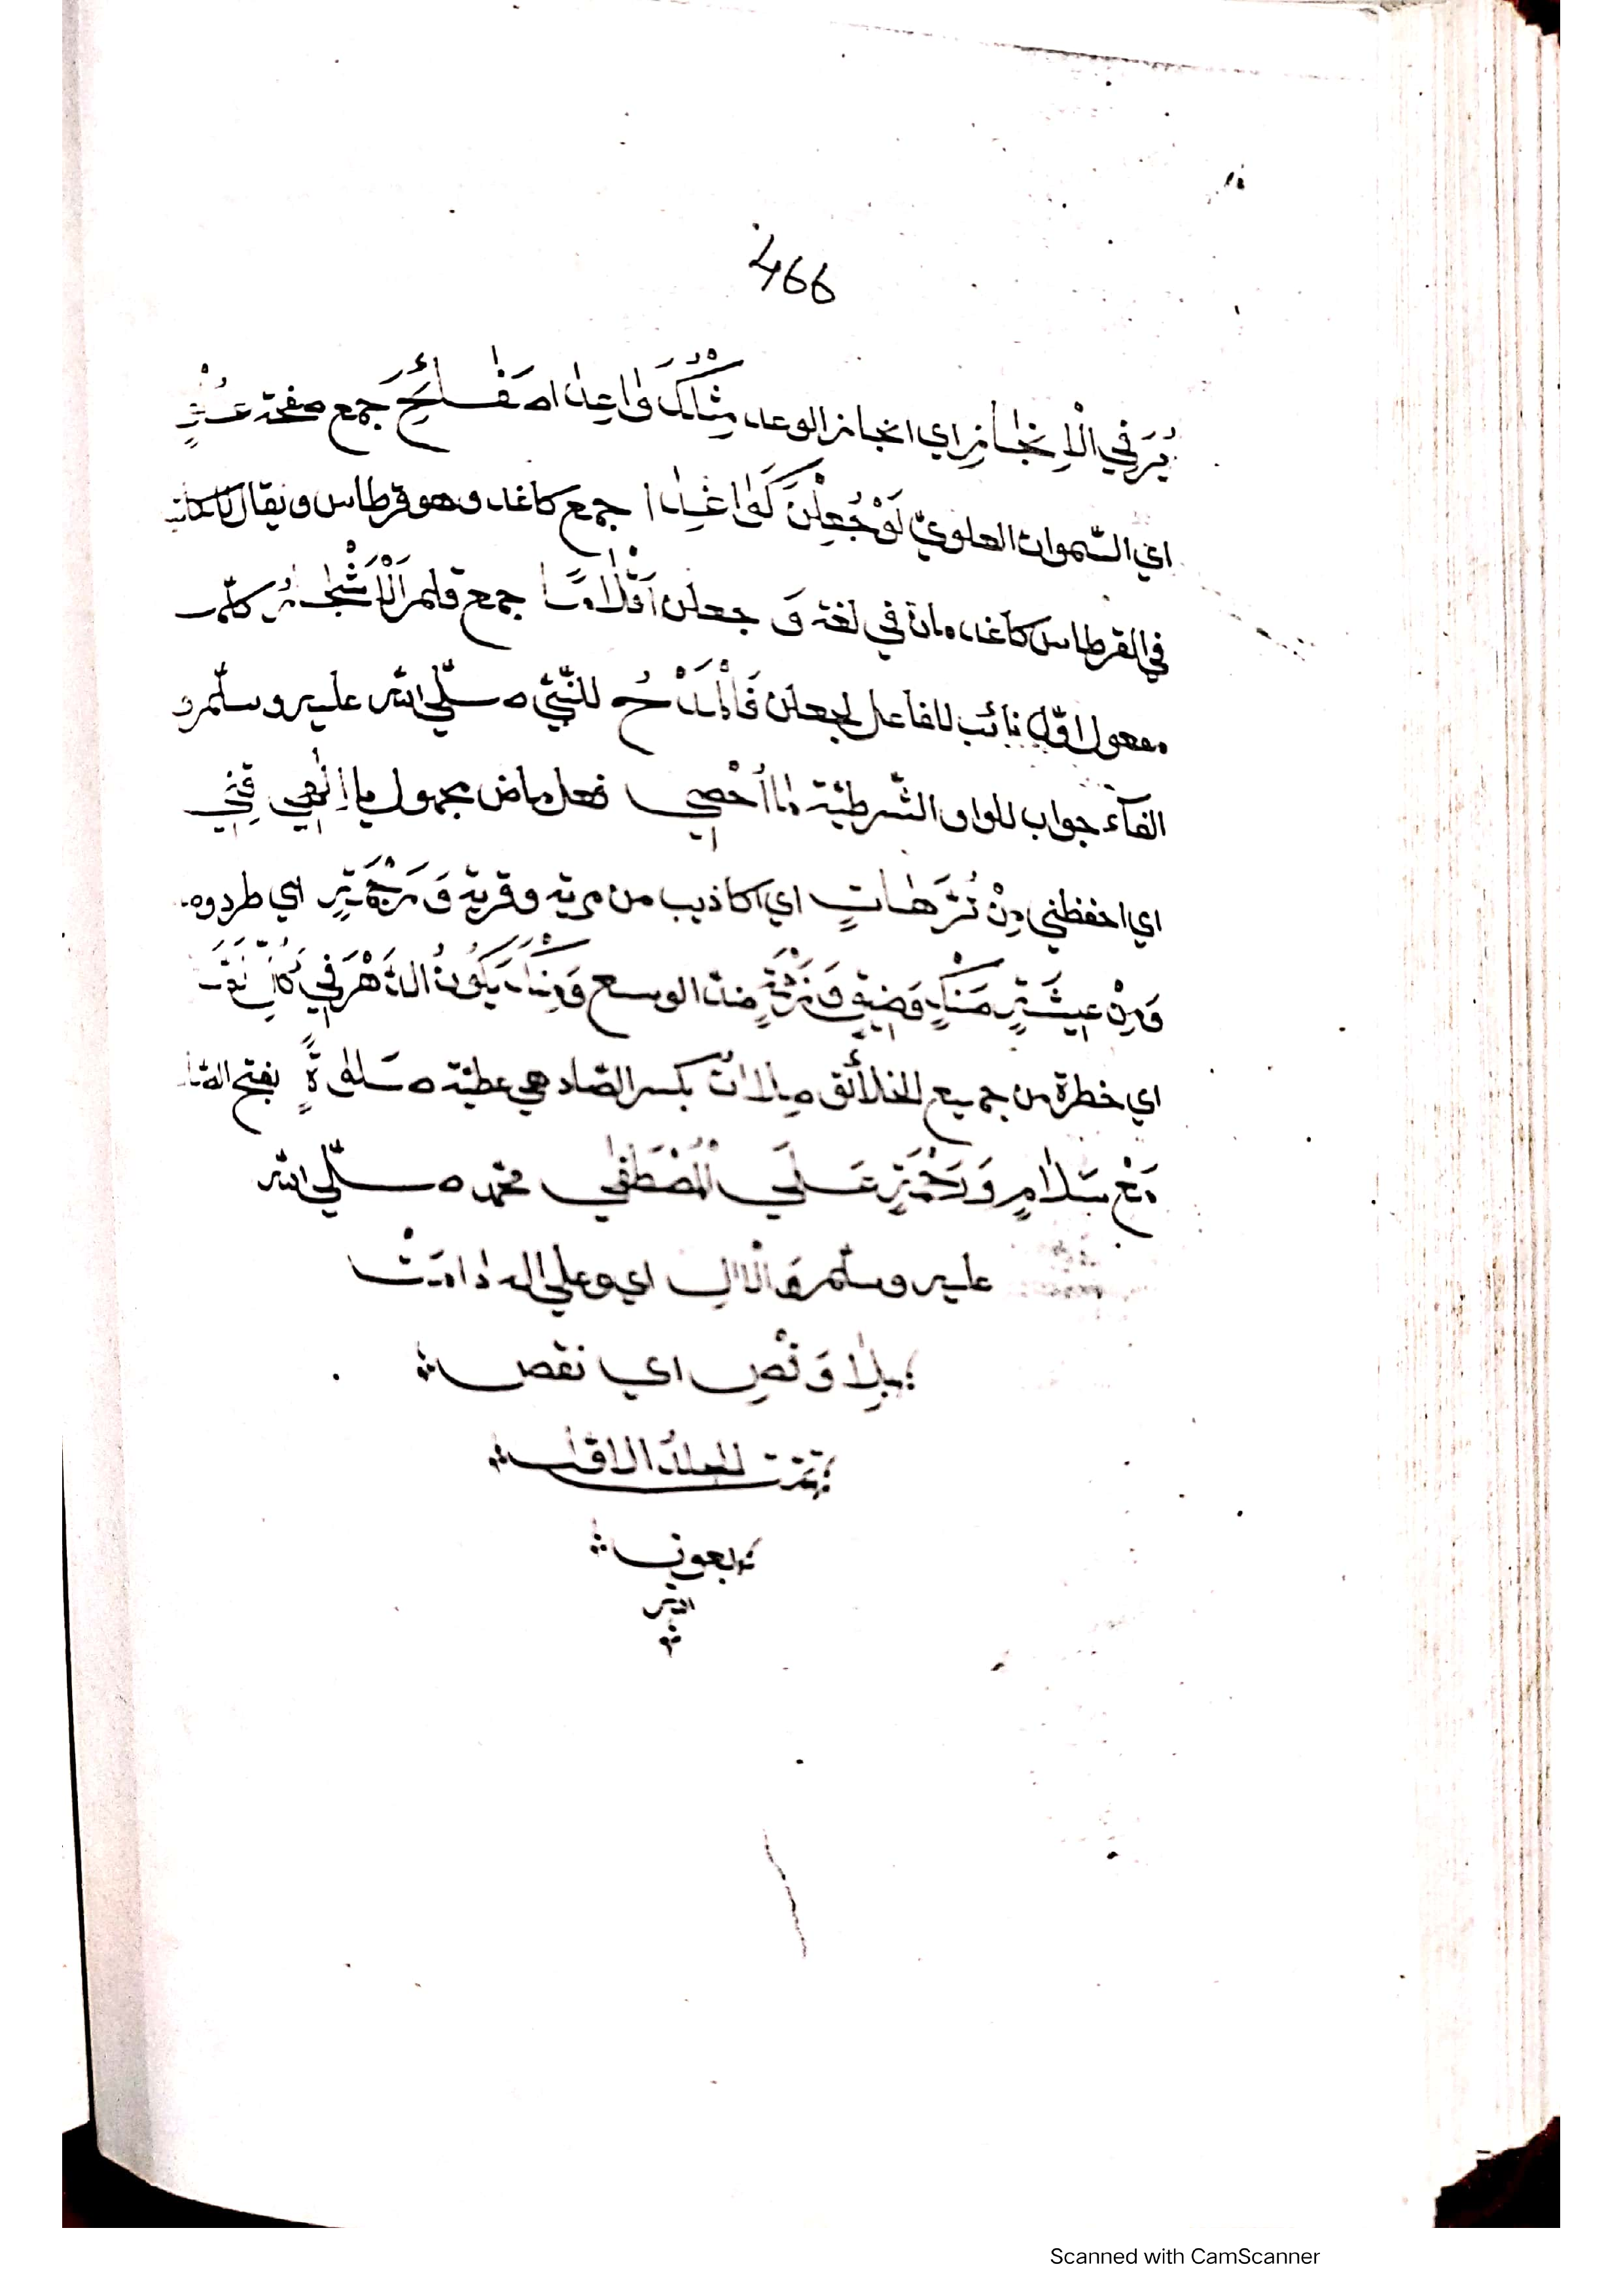 466
يُرَ فِي الْاِنْجَازِ اي انجاز الوعد مِثْلُكَ وَاعِدَا صَفَائِحَ جمع صفحة عُلْوٍ
اي السّموات العلويّ لَوْ جُعِلْنَ كَوَاغِدَا جمع كاغد وهو قرطاس ويقال
في القرطاس كاغد مات في لغة وَ جعلن اَقْلَامًا جمع قلم اَلْاَشْجَارُ كلّها
مفعول اوّل نائب للفاعل لجعلن فَالْمَدْحُ للنّبيّ صلّي الله عليه وسلّم و
الفآء جواب للواو الشّرطيّة مَا اُحْصِي فعل ماض مجهول يا اِلٰهِي قِنِي
اي احفظني مِنْ تُرَّهَاتٍ اي اكاذيب من مرية وقرية وَ مَرْجَمَةٍ اي طرد وه
وَمِنْ عِيشَةٍ ضَنْكٍ وَضِيقٍ وَ ضدّ الوسع وَ يَكُونُ الدَّهْرَ فِي كُلِّ
اي خطرة من جميع الخلائق صِلَاتُ بكسر الصّاد هي عطيّة صَلٰوةٍ بفتح الصّا
مَعْ سَلَامٍ وَرَحْمَةٍ عَلَي الْمُصْطَفٰي محمّد صلّي الله
عليه وسلّم وَالْاٰلِ اي وعلي اله دَامَتْ
بِلَا وَنْصٍ اي نقص
تمّت الجلد الاوّل
بعون
الله
Scanned with CamScanner